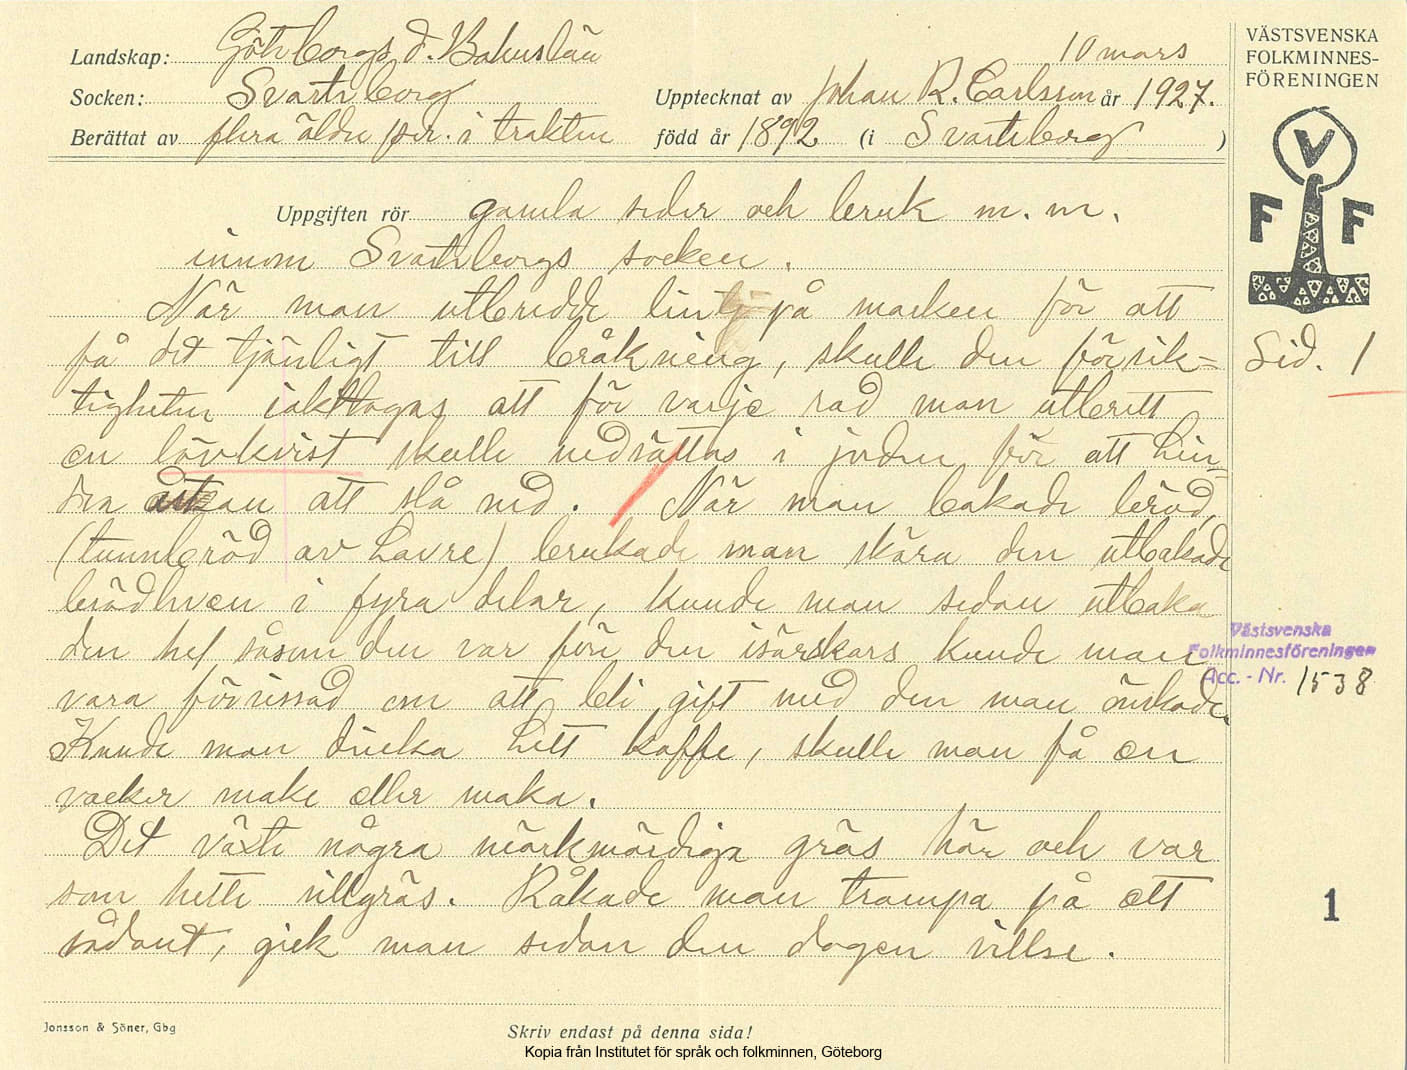 Landskap: Göteborgs o. Bohuslän
Socken: Svarteborg
Berättat av flera äldre per. i trakten
10 mars
Upptecknat av Johan R. Carlsson år 1927.
född år 1892 (i Svarteborg )
VÄSTSVENSKA
FOLKMINNES-
FÖRENINGEN
V
F F
Uppgiften rör gamla seder och bruk m. m.
innom Svarteborgs socken.
När man utbredde lin på marken för att
få det tjänligt till bråkning, skulle den försik=
tigheten iakttagas att för varje rad man utbrett
en lövkvist skulle nedsättas i jorden för att hin-
dra åskan att slå ned. När man bakade bröd,
(tunnbröd av havre) brukade man skära den utbakade
brödhven i fyra delar, kunde man sedan utbaka
den hel såsom den var före den isärskars kunde man
vara förvissad om att bli gift med den man önskade.
Kunde man dricka hett kaffe, skulle man få en
vacker make eller maka.
Det växte några märkvärdiga gräs här och var
som hette villgräs. Råkade man trampa på ett
sådant, gick man sedan den dagen villse.
Sid. 1
Västsvenska
Folkminnesföreningen
Acc. - Nr. 1538
1
Jonsson & Söner, Gbg
Skriv endast på denna sida!
Kopia från Institutet för språk och folkminnen, Göteborg